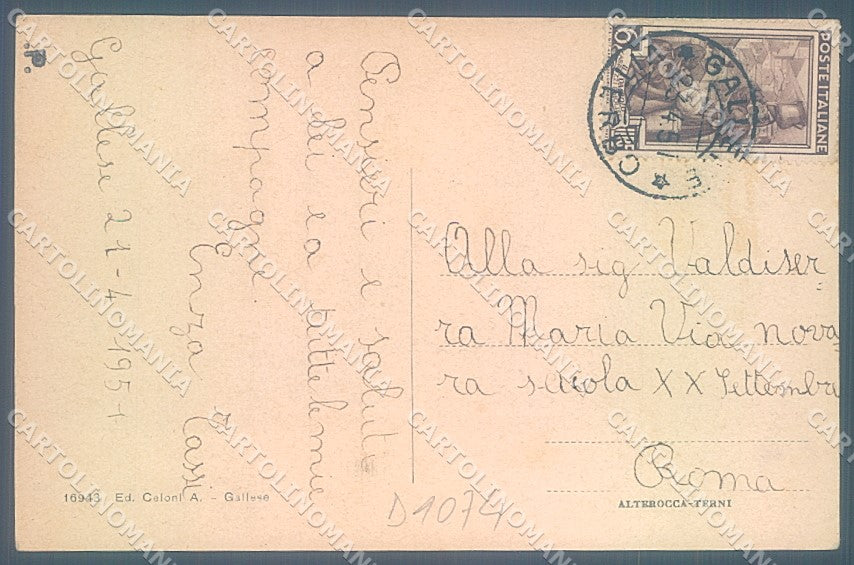 P.
Gallese 21-4-1951
Pensieri e saluti
a lei e a tutte le mie
compagne
Enza Tassi
6
POSTE ITALIANE
GALLESE
VITERBO
21.4.51
Alla sig Valdiser
ra Maria Via nova
ra scuola XX Settembre
Roma
16943 Ed. Celoni A. - Gallese
D1074
ALTEROCCA-TERNI
CARTOLINOMANIA